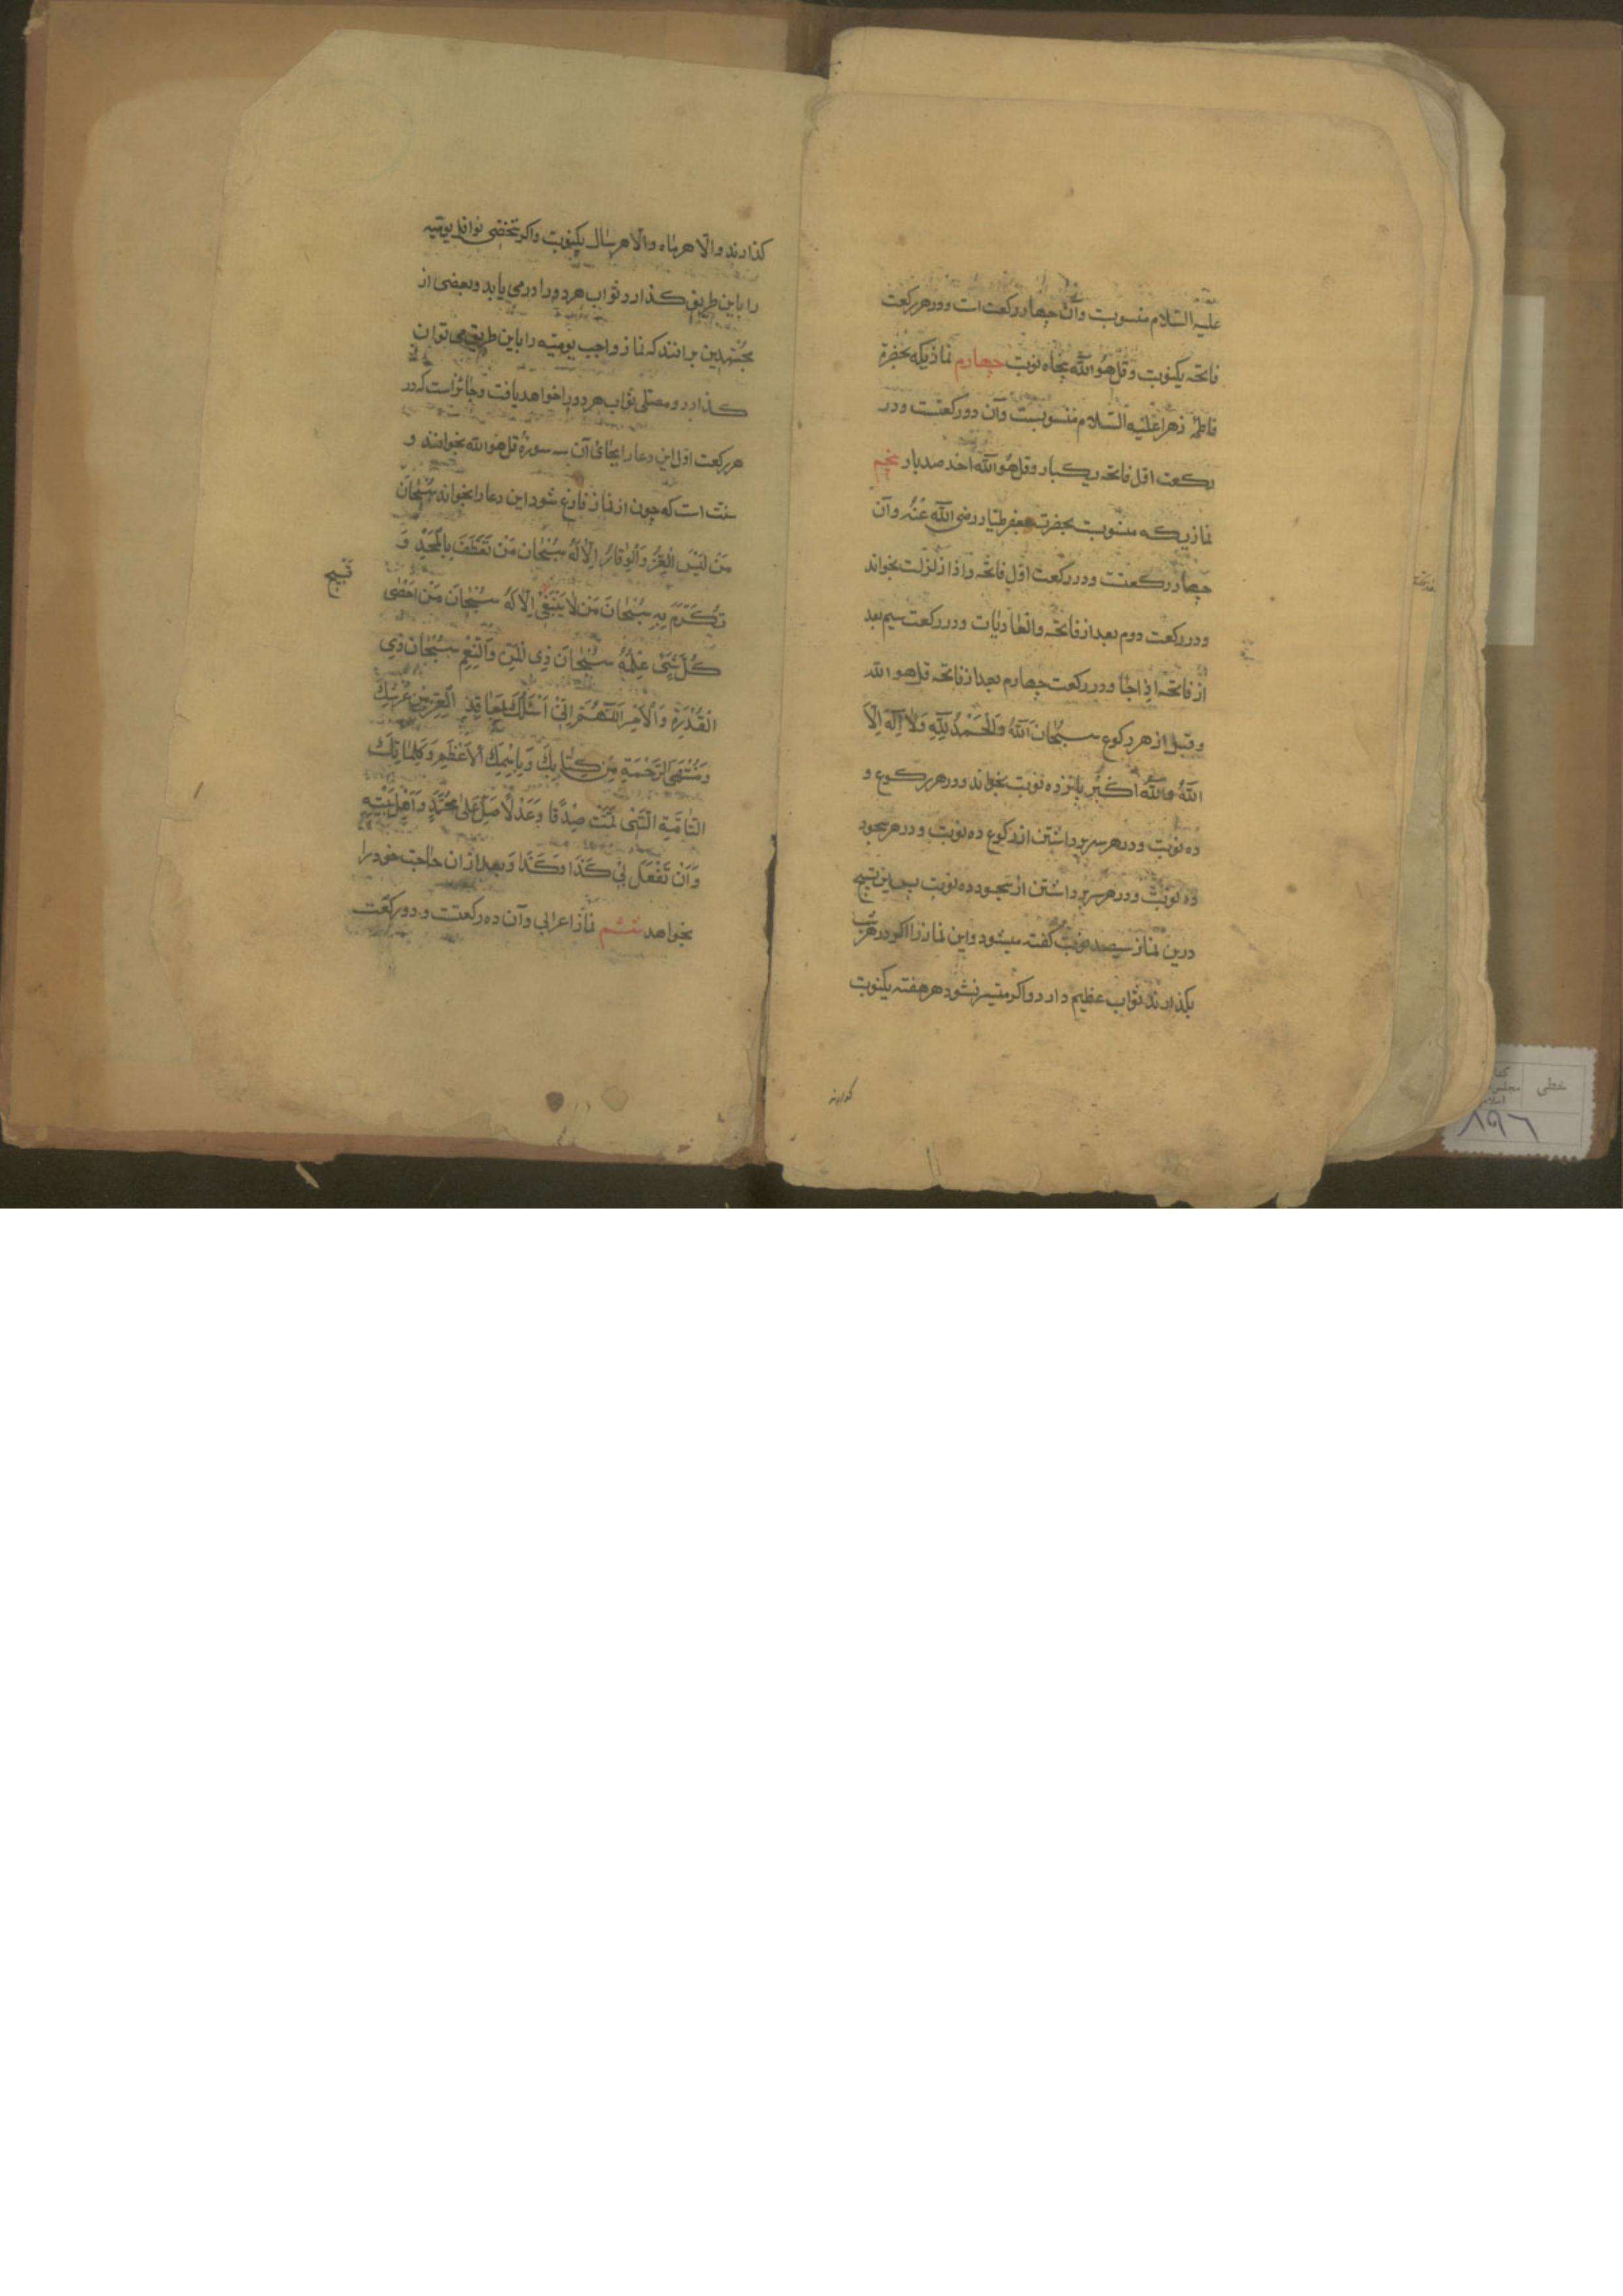 علیه السّلام منسوبست وآن چهار رکعت است و در هر رکعت
فاتحه یکنوبت و قل هُوالله پنجاه نوبت چهارم نمازیکه بحضرة
فاطمهٔ زهرا عَلَیْه السّلام منسوبست وآن دو رکعتست و در
رکعت اوّل فاتحه یکبار و قل هُوالله اَحَد صد بار پنجم
نمازیکه منسوبست بحضرت جعفر طیّار رضی الله عَنْهُ وآن
چهار رکعتست و در رکعت اوّل فاتحه و اذا زلزلت بخواند
و در رکعت دوم بعد از فاتحه والعادیات و در رکعت سیم بعد
از فاتحه اذا جا و در رکعت چهارم بعد از فاتحه قل هو الله
و قبل از هر رکوع سُبْحانَ اللهُ وَالْحَمْدُ لِلّهِ وَلا اِلَهَ اِلَّا
اللهُ واللهُ اَکْبَرُ پانزده نوبت بخواند و در هر رکوع و
ده نوبت و در هر سر برداشتن از رکوع ده نوبت و در هر سجود
ده نوبت و در هر سر برداشتن از سجود ده نوبت پس این تسبیح
درین نماز سیصد نوبت گفته میشود و این نماز را اکر در هر شب
بکذارند ثواب عظیم دارد و اکر میسر نشود هر هفته یکنوبت
کذارند
کذارند و الّا هر ماه و الّا هر سال یکنوبت و اکر شخصی نوافل یومیّه
را باین طریق کذارد ثواب هر دو را در می یابد و بعضی از
مجتهدین برانند که نماز واجب یومیّه را باین طریق می توان
کذارد و مصلّی ثواب هر دو را خواهد یافت و جائز است که در
هر رکعت اوّل این دعا را بجای آن سه سورهٔ قل هو الله بخوانند و
سنّت است که چون از نماز فارغ شود این دعا را بخواند سُبْحانَ
مَنْ لَبِسَ الْعِزَّ وَالْوِقارَ اِلّا لَهُ سُبْحانَ مَنْ تَعَطَّفَ بِالْمَجْدِ وَ
تَکَرَّمَ بِهِ سُبْحانَ مَنْ لا یَنْبَغی اِلّا لَهُ سُبْحانَ مَنْ اَحْصٰی
تسبیح
کُلَّ شَیْ عِلْمُهُ سُبْحانَ ذِی الْمَنِّ وَالنِّعَمِ سُبْحانَ ذِی
الْقُدْرَةِ وَالْاَمْرِ اَللّهُمَّ اِنّی اَسْئَلُکَ بِمَعاقِدِ الْعِزِّ مِنْ عَرْشِکَ
وَمُنْتَهَی الرَّحْمَةِ مِنْ کِتابِکَ وَبِاسْمِکَ الْاَعْظَمِ وَکَلِماتِکَ
التّامَّةِ الَّتی تَمَّتْ صِدْقًا وَعَدْلًا صَلِّ عَلٰی مُحَمَّدٍ وَاَهْلِ بَیْتِهِ
وَاَنْ تَفْعَلَ بی کَذا وَکَذا و بعد از ان حاجت خود را
بخواهد ششم نماز اعرابی وآن ده رکعتست و دو رکعت
خطی
مجلس
۸۹۶